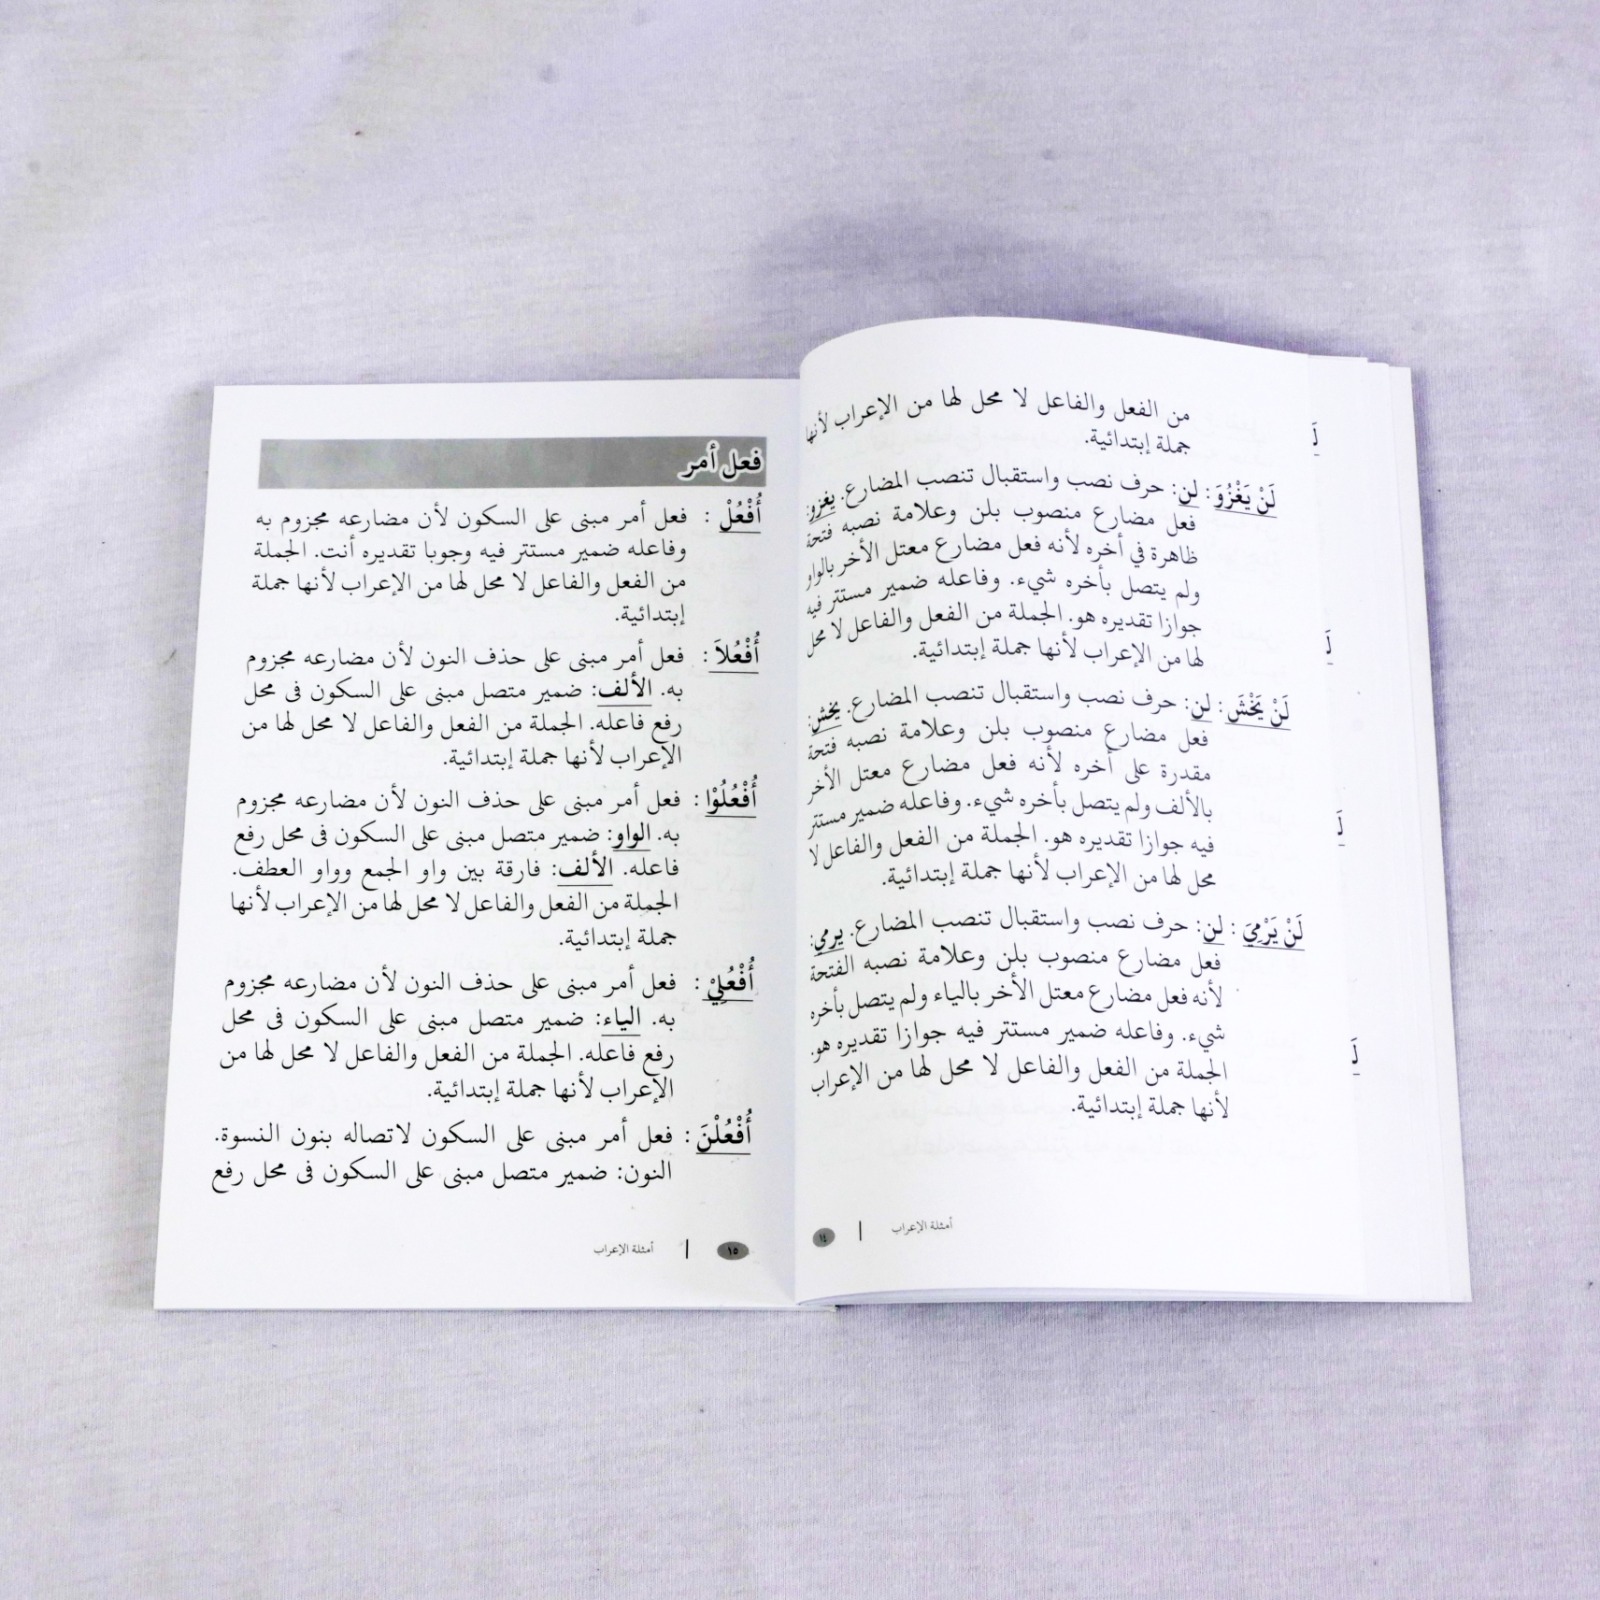 من الفعل والفاعل لا محل لها من الإعراب لأنها
جملة إبتدائية.
لَنْ يَغْزُوَ : لن: حرف نصب واستقبال تنصب المضارع. يغزو:
فعل مضارع منصوب بلن وعلامة نصبه فتحة
ظاهرة في أخره لأنه فعل مضارع معتل الأخر بالواو
ولم يتصل بأخره شيء. وفاعله ضمير مستتر فيه
جوازا تقديره هو. الجملة من الفعل والفاعل لا محل
لها من الإعراب لأنها جملة إبتدائية.
لَنْ يَخْشَ : لن: حرف نصب واستقبال تنصب المضارع. يخش:
فعل مضارع منصوب بلن وعلامة نصبه فتحة
مقدرة على أخره لأنه فعل مضارع معتل الأخر
بالألف ولم يتصل بأخره شيء. وفاعله ضمير مستتر
فيه جوازا تقديره هو. الجملة من الفعل والفاعل لا
محل لها من الإعراب لأنها جملة إبتدائية.
لَنْ يَرْمِيَ : لن: حرف نصب واستقبال تنصب المضارع. يرمي:
فعل مضارع منصوب بلن وعلامة نصبه الفتحة
لأنه فعل مضارع معتل الأخر بالياء ولم يتصل بأخره
شيء. وفاعله ضمير مستتر فيه جوازا تقديره هو.
الجملة من الفعل والفاعل لا محل لها من الإعراب
لأنها جملة إبتدائية.
أمثلة الإعراب | ١٤
فعل أمر
أُفْعُلْ : فعل أمر مبنى على السكون لأن مضارعه مجزوم به
وفاعله ضمير مستتر فيه وجوبا تقديره أنت. الجملة
من الفعل والفاعل لا محل لها من الإعراب لأنها جملة
إبتدائية.
أُفْعُلاَ : فعل أمر مبنى على حذف النون لأن مضارعه مجزوم
به. الألف: ضمير متصل مبنى على السكون فى محل
رفع فاعله. الجملة من الفعل والفاعل لا محل لها من
الإعراب لأنها جملة إبتدائية.
أُفْعُلُوْا : فعل أمر مبنى على حذف النون لأن مضارعه مجزوم
به. الواو: ضمير متصل مبنى على السكون فى محل رفع
فاعله. الألف: فارقة بين واو الجمع وواو العطف.
الجملة من الفعل والفاعل لا محل لها من الإعراب لأنها
جملة إبتدائية.
أُفْعُلِيْ : فعل أمر مبنى على حذف النون لأن مضارعه مجزوم
به. الياء: ضمير متصل مبنى على السكون فى محل
رفع فاعله. الجملة من الفعل والفاعل لا محل لها من
الإعراب لأنها جملة إبتدائية.
أُفْعُلْنَ : فعل أمر مبنى على السكون لاتصاله بنون النسوة.
النون: ضمير متصل مبنى على السكون فى محل رفع
١٥ | أمثلة الإعراب